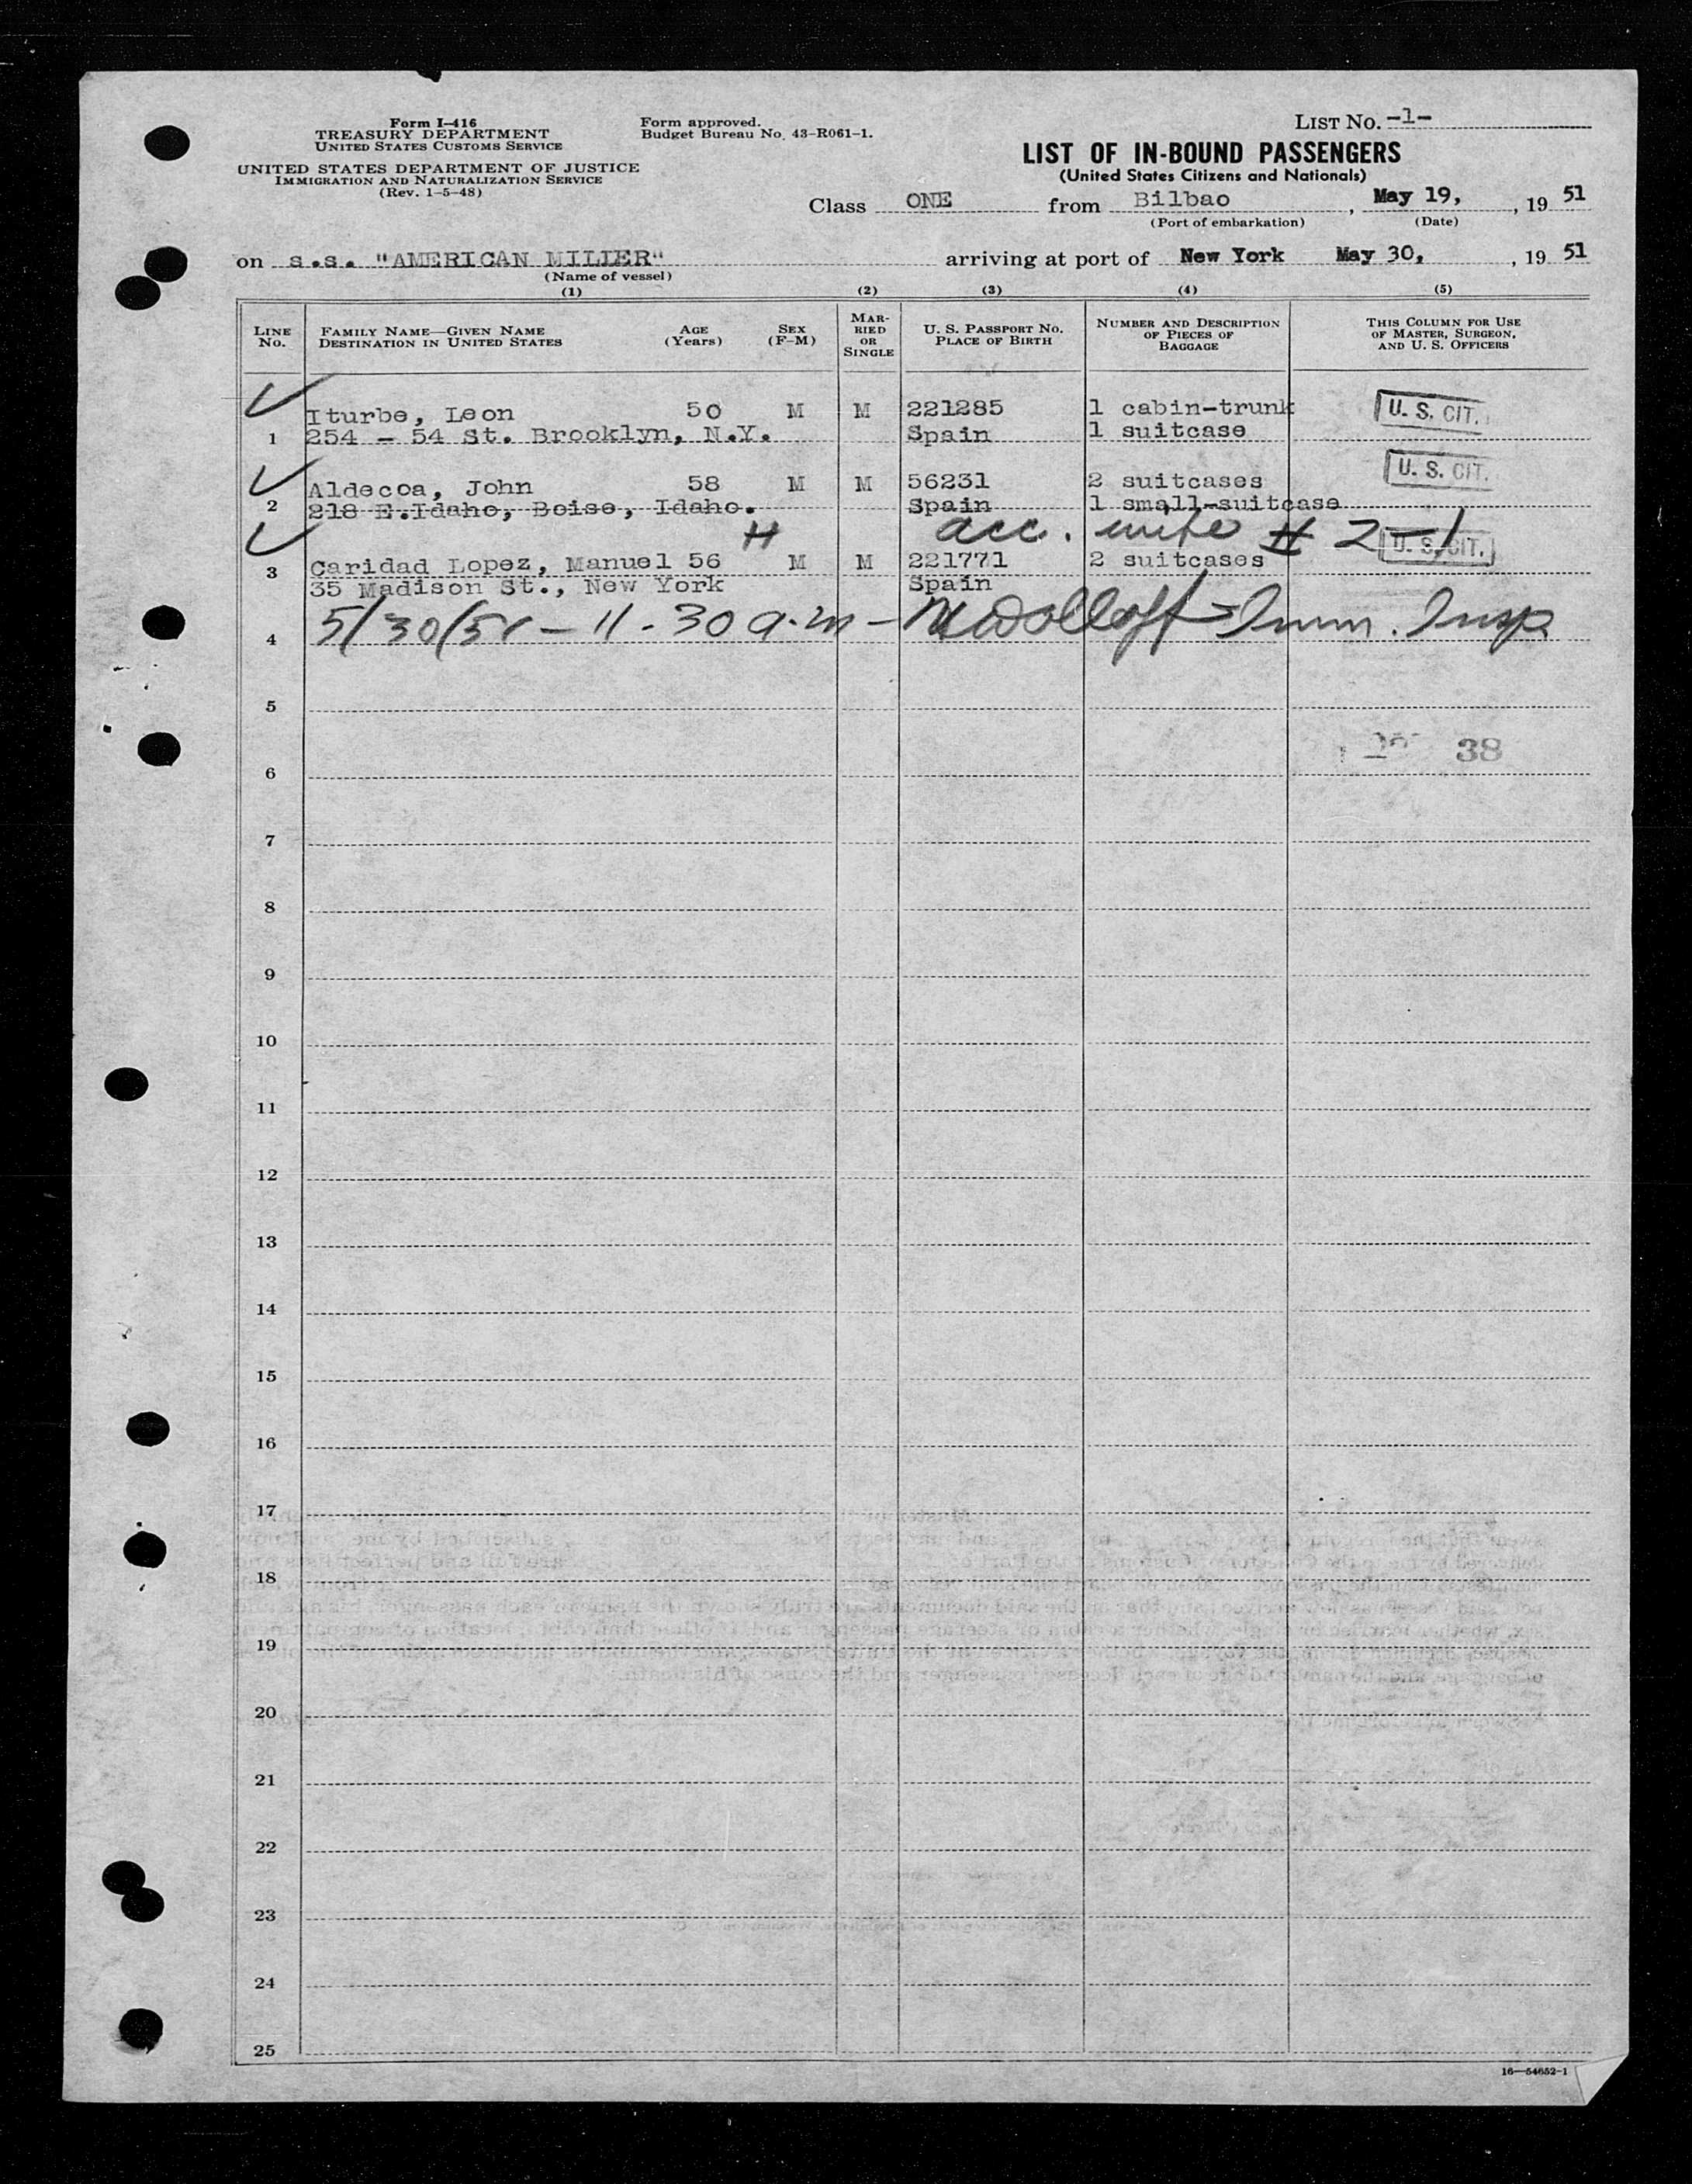 Form I-416
TREASURY DEPARTMENT
UNITED STATES CUSTOMS SERVICE
UNITED STATES DEPARTMENT OF JUSTICE
IMMIGRATION AND NATURALIZATION SERVICE
(Rev. 1-5-48)
Form approved.
Budget Bureau No. 43-R061-1.
LIST NO. -1-
LIST OF IN-BOUND PASSENGERS
(United States Citizens and Nationals)
Class ONE from Bilbao, May 19, , 19 51
(Port of embarkation) (Date)
on s.s. "AMERICAN MILLER" arriving at port of New York May 30, , 19 51
(Name of vessel)
(1) (2) (3) (4) (5)
LINE No. FAMILY NAME—GIVEN NAME DESTINATION IN UNITED STATES AGE (Years) SEX (F-M) MARRIED OR SINGLE U. S. PASSPORT NO. PLACE OF BIRTH NUMBER AND DESCRIPTION OF PIECES OF BAGGAGE THIS COLUMN FOR USE OF MASTER, SURGEON, AND U. S. OFFICERS
Iturbe, Leon 50 M M 221285 1 cabin-trunk U. S. CIT.
1 254 - 54 St. Brooklyn, N.Y. Spain 1 suitcase
Aldecoa, John 58 M M 56231 2 suitcases U. S. CIT.
2 218 E.Idaho, Boise, Idaho. Spain 1 small-suitcase
H acc. wife # 2-1
3 Caridad Lopez, Manuel 56 M M 221771 2 suitcases U. S. CIT.
35 Madison St., New York Spain
4 5/30/51 - 11-30 a.m - Imm. Insp
5
6 38
7
8
9
10
11
12
13
14
15
16
17
18
19
20
21
22
23
24
25
16—54652-1